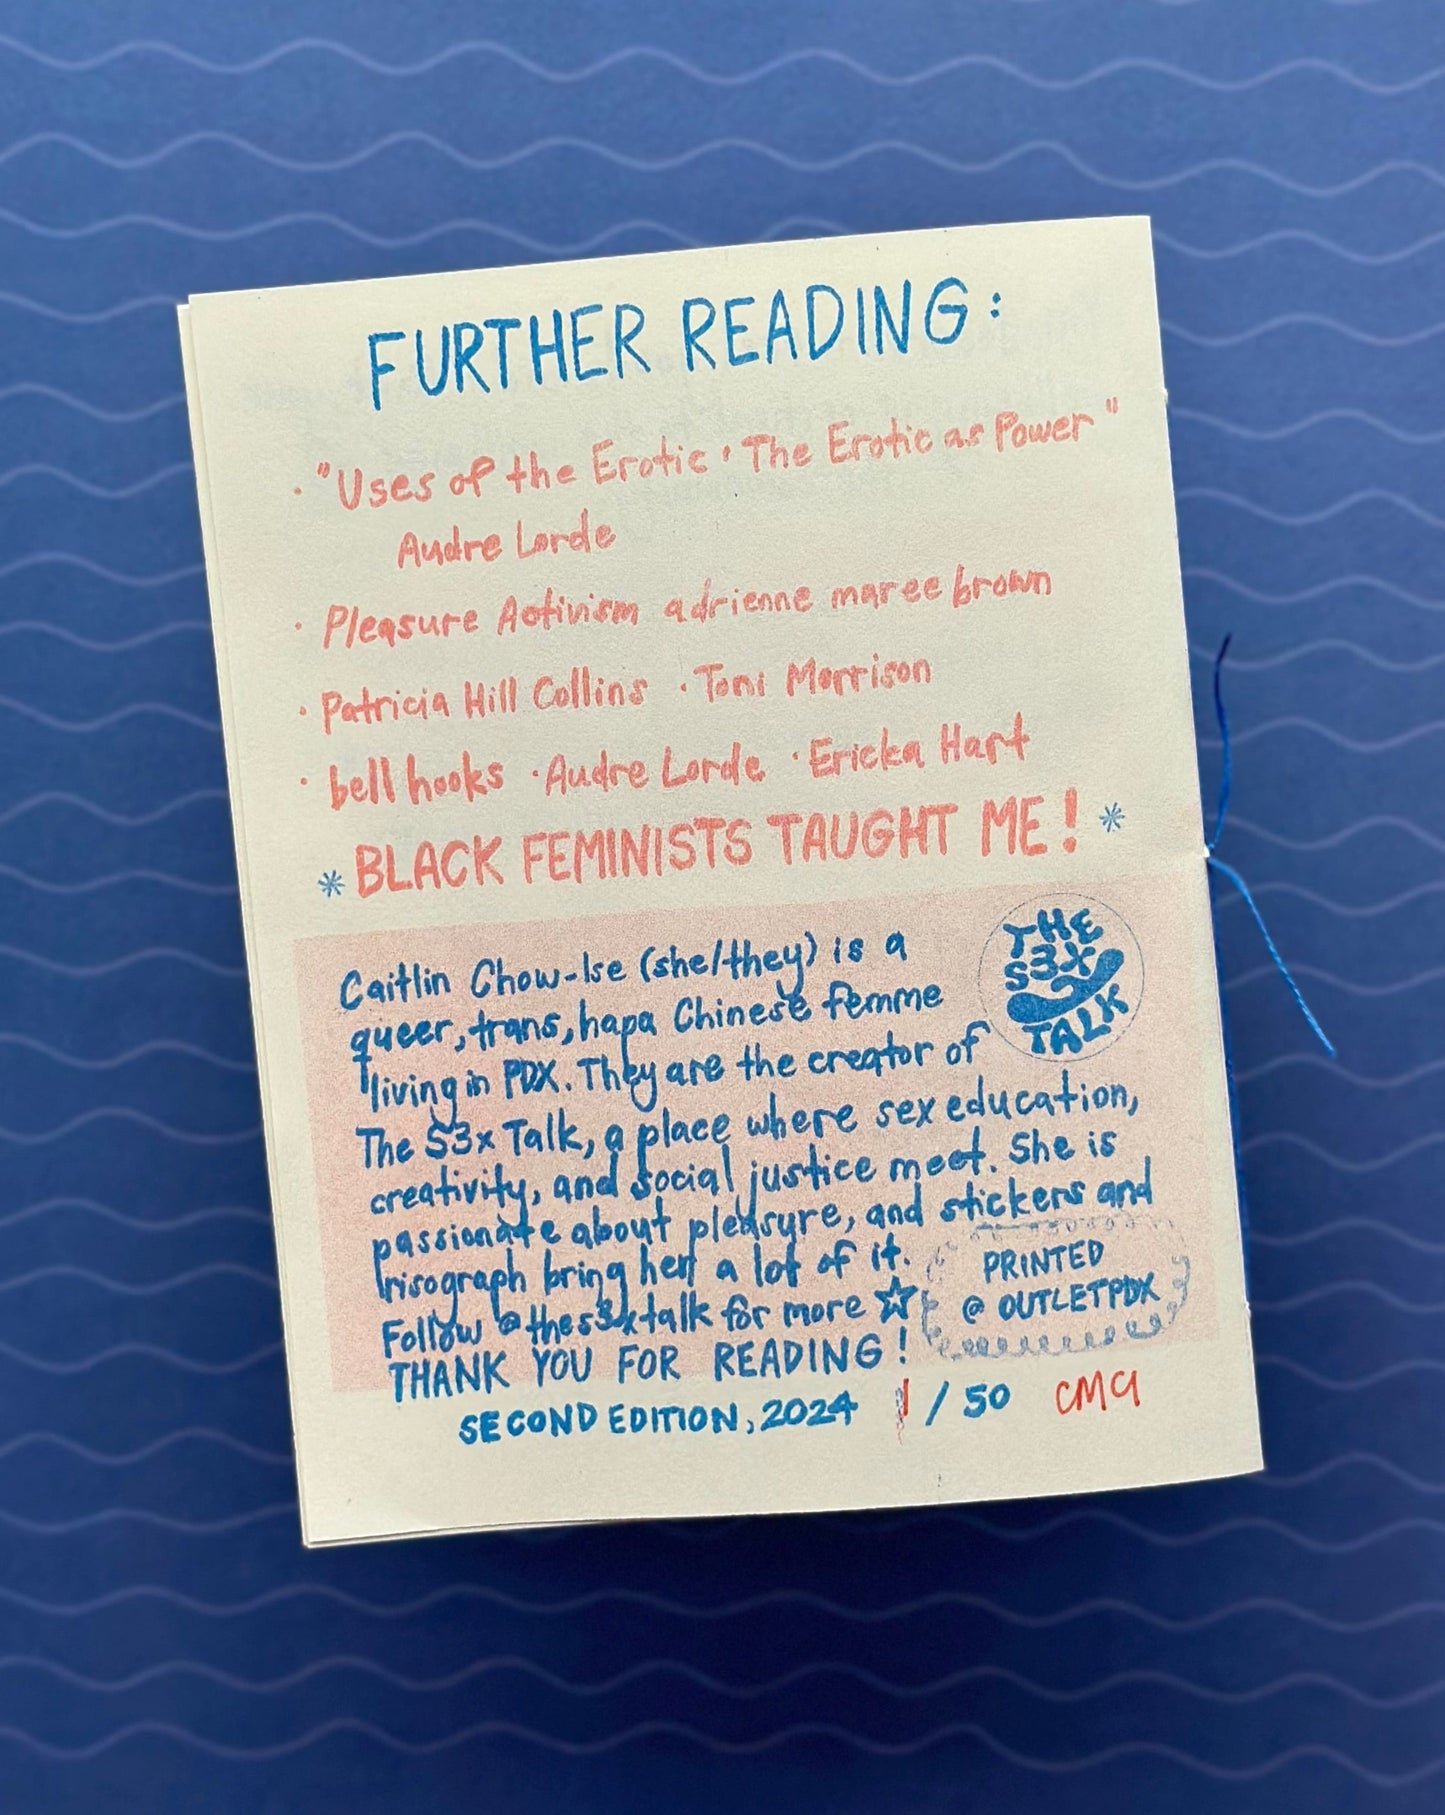 FURTHER READING:
· "Uses of the Erotic · The Erotic as Power"
Audre Lorde
· Pleasure Activism adrienne maree brown
· Patricia Hill Collins · Toni Morrison
· bell hooks · Audre Lorde · Ericka Hart
* BLACK FEMINISTS TAUGHT ME! *
THE
S3X
TALK
Caitlin Chow-Ise (she/they) is a
queer, trans, hapa Chinese femme
living in PDX. They are the creator of
The S3x Talk, a place where sex education,
creativity, and social justice meet. She is
passionate about pleasure, and stickers and
risograph bring her a lot of it.
Follow @thes3xtalk for more ☆
PRINTED
@ OUTLETPDX
THANK YOU FOR READING!
SECOND EDITION, 2024 1/50